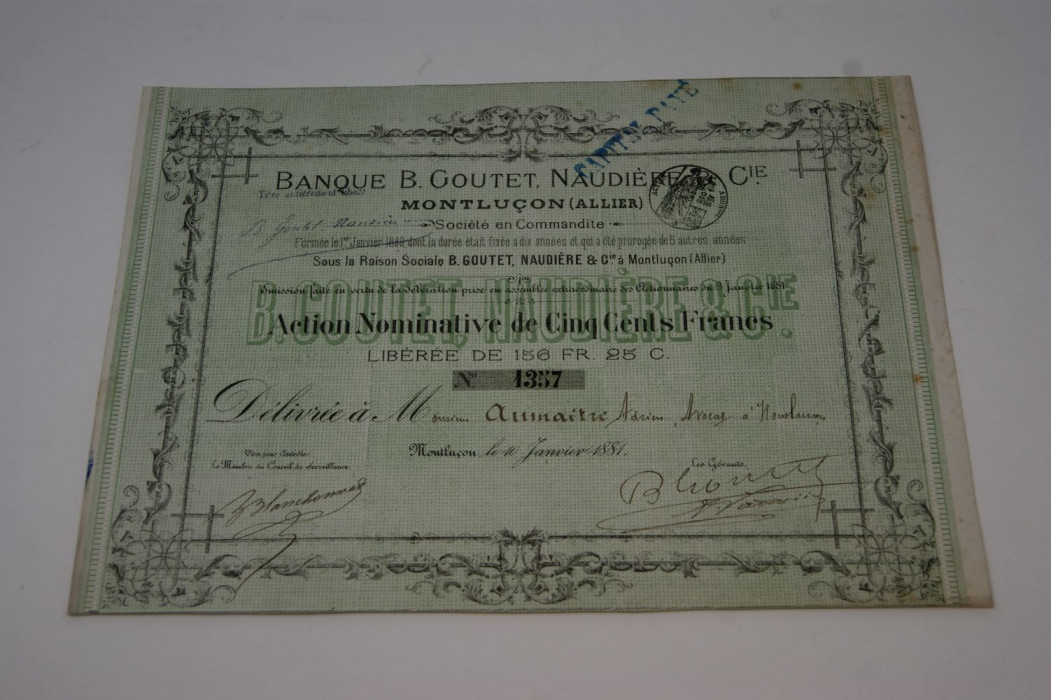 CAPITAL PAYÉ
BANQUE B. GOUTET, NAUDIÈRE & CIE.
MONTLUÇON (ALLIER)
B. Goutet Naudière
Société en Commandite
Formée le 1er Janvier 1880 dont la durée était fixée à dix années et qui a été prorogée de 5 autres années
Sous la Raison Sociale B. GOUTET, NAUDIÈRE & Cie à Montluçon (Allier)
Émission faite en vertu de la délibération prise en assemblée extraordinaire des Actionnaires du 9 Janvier 1881
B. GOUTET, NAUDIÈRE & CIE.
Action Nominative de Cinq Cents Francs
LIBÉRÉE DE 156 FR. 25 C.
No 1357
Délivrée à Monsieur Aumaître Adrien, Avocat à Montluçon
Montluçon, le 10 Janvier 1881.
Vu pour Contrôle
Le Membre du Conseil de Surveillance.
Les Gérants.
B Goutet